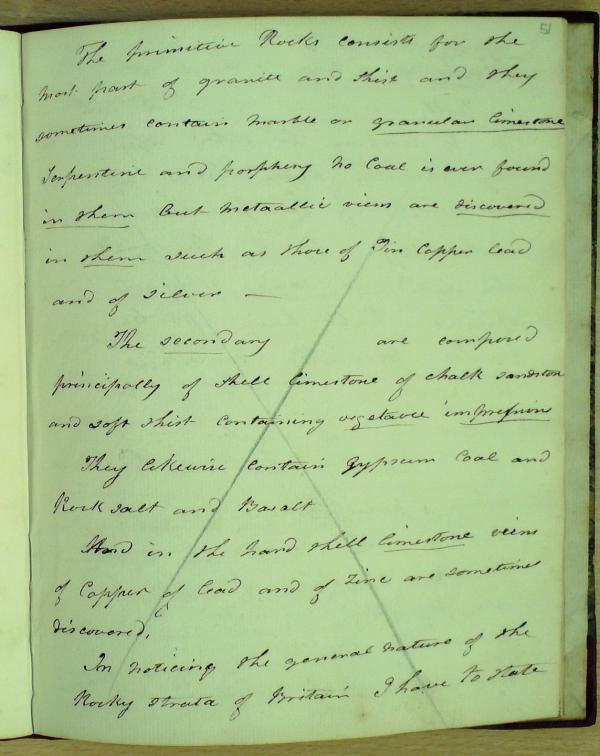 51
The primitive Rocks consists for the
most part of granite and shist and they
sometimes contain marble or granular limestone
Serpentine and porphery No Coal is ever found
in them but metaallic viens are discovered
in them such as those of Tin Copper lead
and of silver —
The secondary are composed
principally of shell limestone of chalk sandstone
and soft shist containing vegetavle impressions
They likewise contain Gypsum Coal and
Rock salt and Basalt
And in the hard shell limestone viens
of Copper of lead and of zinc are sometimes
discovered.
In noticing the general nature of the
Rocky strata of Britain I have to state